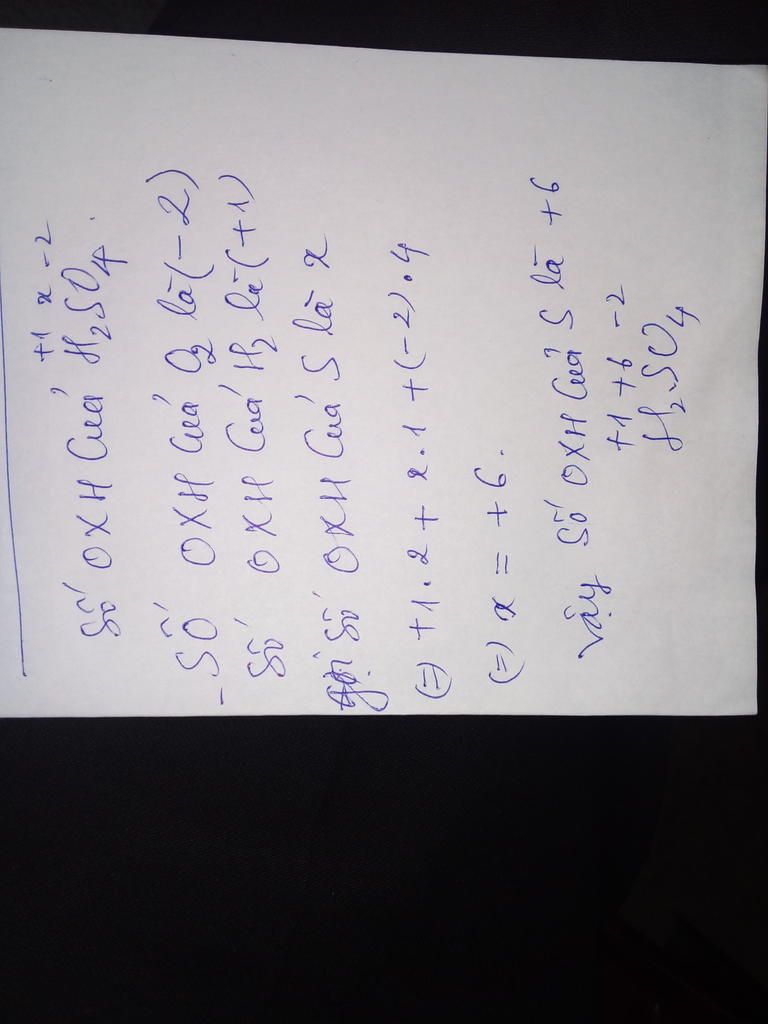 +1 x -2
Số OXH Của H₂SO₄.
- Số OXH Của O₂ là (-2)
Số OXH Của H₂ là (+1)
Gọi Số OXH Của S là x
(=) +1.2 + x.1 + (-2).4
(=) x = +6.
Vậy Số OXH Của S là +6
+1 +6 -2
H₂SO₄